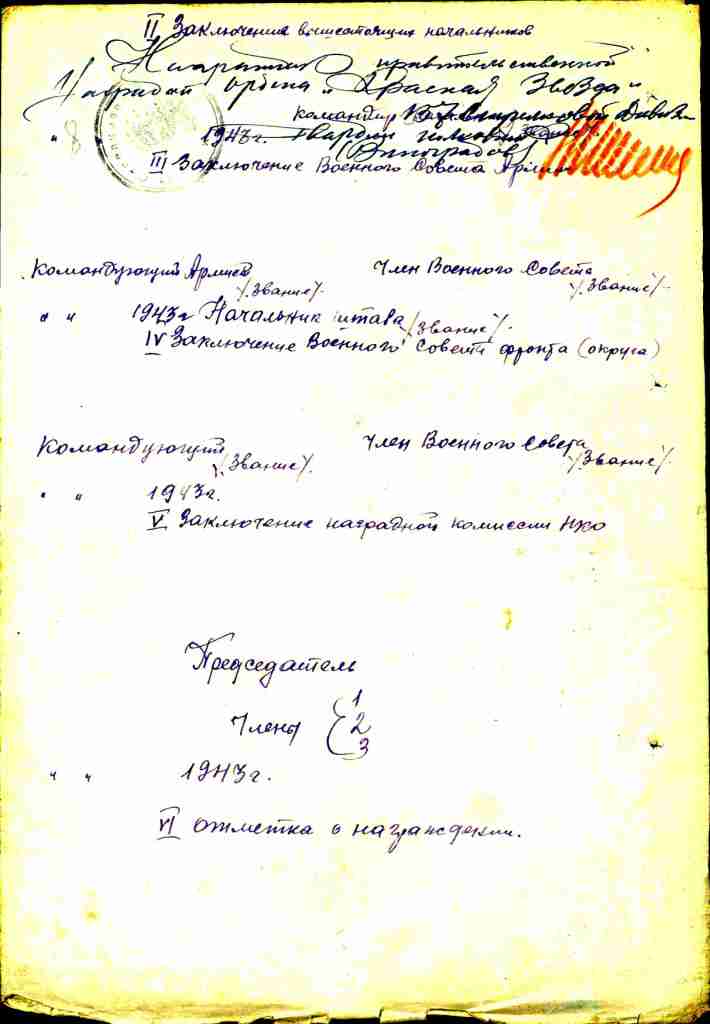 II Заключение вышестоящих начальников
правительственной
наградой ордена "Красная Звезда"
командир Стрелковой Дивиз
" 8 " 1943 г. Гвардии полковник
(Виноградов)
III Заключение Военного Совета Армии
Командующий Армией Член Военного Совета
/звание/. /звание/.
" " 1943 г Начальник штаба /звание/.
IV Заключение Военного Совета фронта (округа)
Командующий Член Военного Совета
/звание/. /звание/.
" " 1943 г.
V Заключение наградной комиссии НКО
Председатель
Члены { 1
2
3
" " 1943 г.
VI Отметка о награждении.